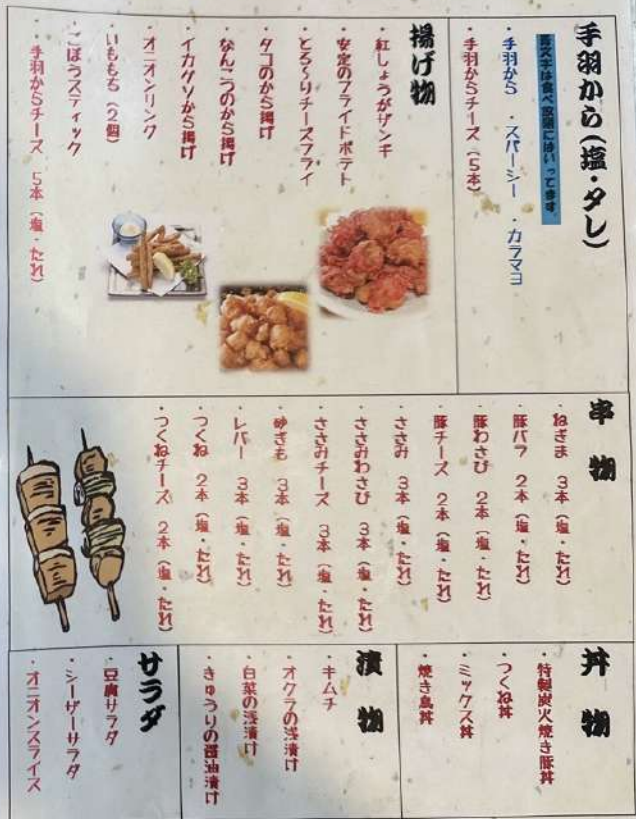 手羽から(塩・タレ)
青文字は食べ放題にはいってます。
・手羽から ・スパーシー ・カラマヨ
・手羽からチーズ(5本)
揚げ物
・紅しょうがザンギ
・安定のフライドポテト
・とろ〜りチーズフライ
・タコのから揚げ
・なんこつのから揚げ
・イカゲソから揚げ
・オニオンリング
・いももち(2個)
・ごぼうスティック
・手羽からチーズ 5本(塩・たれ)
串物
・ねぎま 3本(塩・たれ)
・豚バラ 2本(塩・たれ)
・豚わさび 2本(塩・たれ)
・豚チーズ 2本(塩・たれ)
・ささみ 3本(塩・たれ)
・ささみわさび 3本(塩・たれ)
・ささみチーズ 3本(塩・たれ)
・砂ぎも 3本(塩・たれ)
・レバー 3本(塩・たれ)
・つくね 2本(塩・たれ)
・つくねチーズ 2本(塩・たれ)
丼物
・特製炭火焼き豚丼
・つくね丼
・ミックス丼
・焼き鳥丼
漬物
・キムチ
・オクラの浅漬け
・白菜の浅漬け
・きゅうりの醤油漬け
サラダ
・豆腐サラダ
・シーザーサラダ
・オニオンスライス